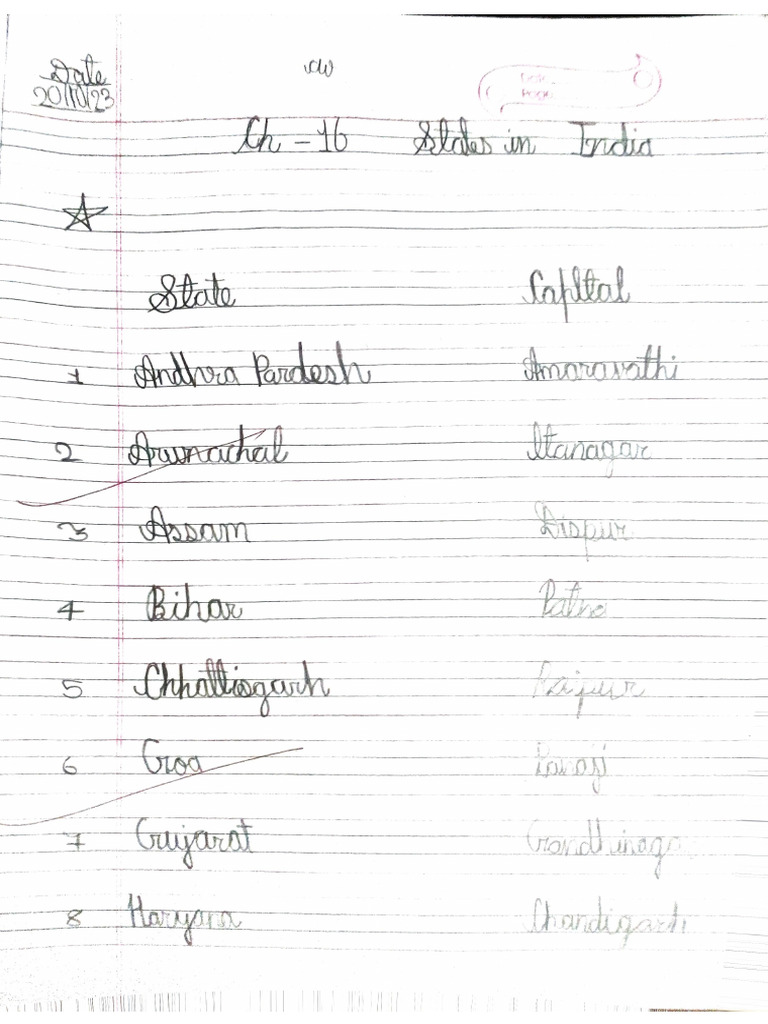 Date
cw
20/10/23
Ch - 16 States in India
State Capital
1 Andhra Pardesh Amaravathi
2 Arunachal Itanagar
3 Assam Dispur
4 Bihar Patna
5 Chhattisgarh Raipur
6 Goa Panaji
7 Gujarat Gandhinaga
8 Haryana Chandigarh